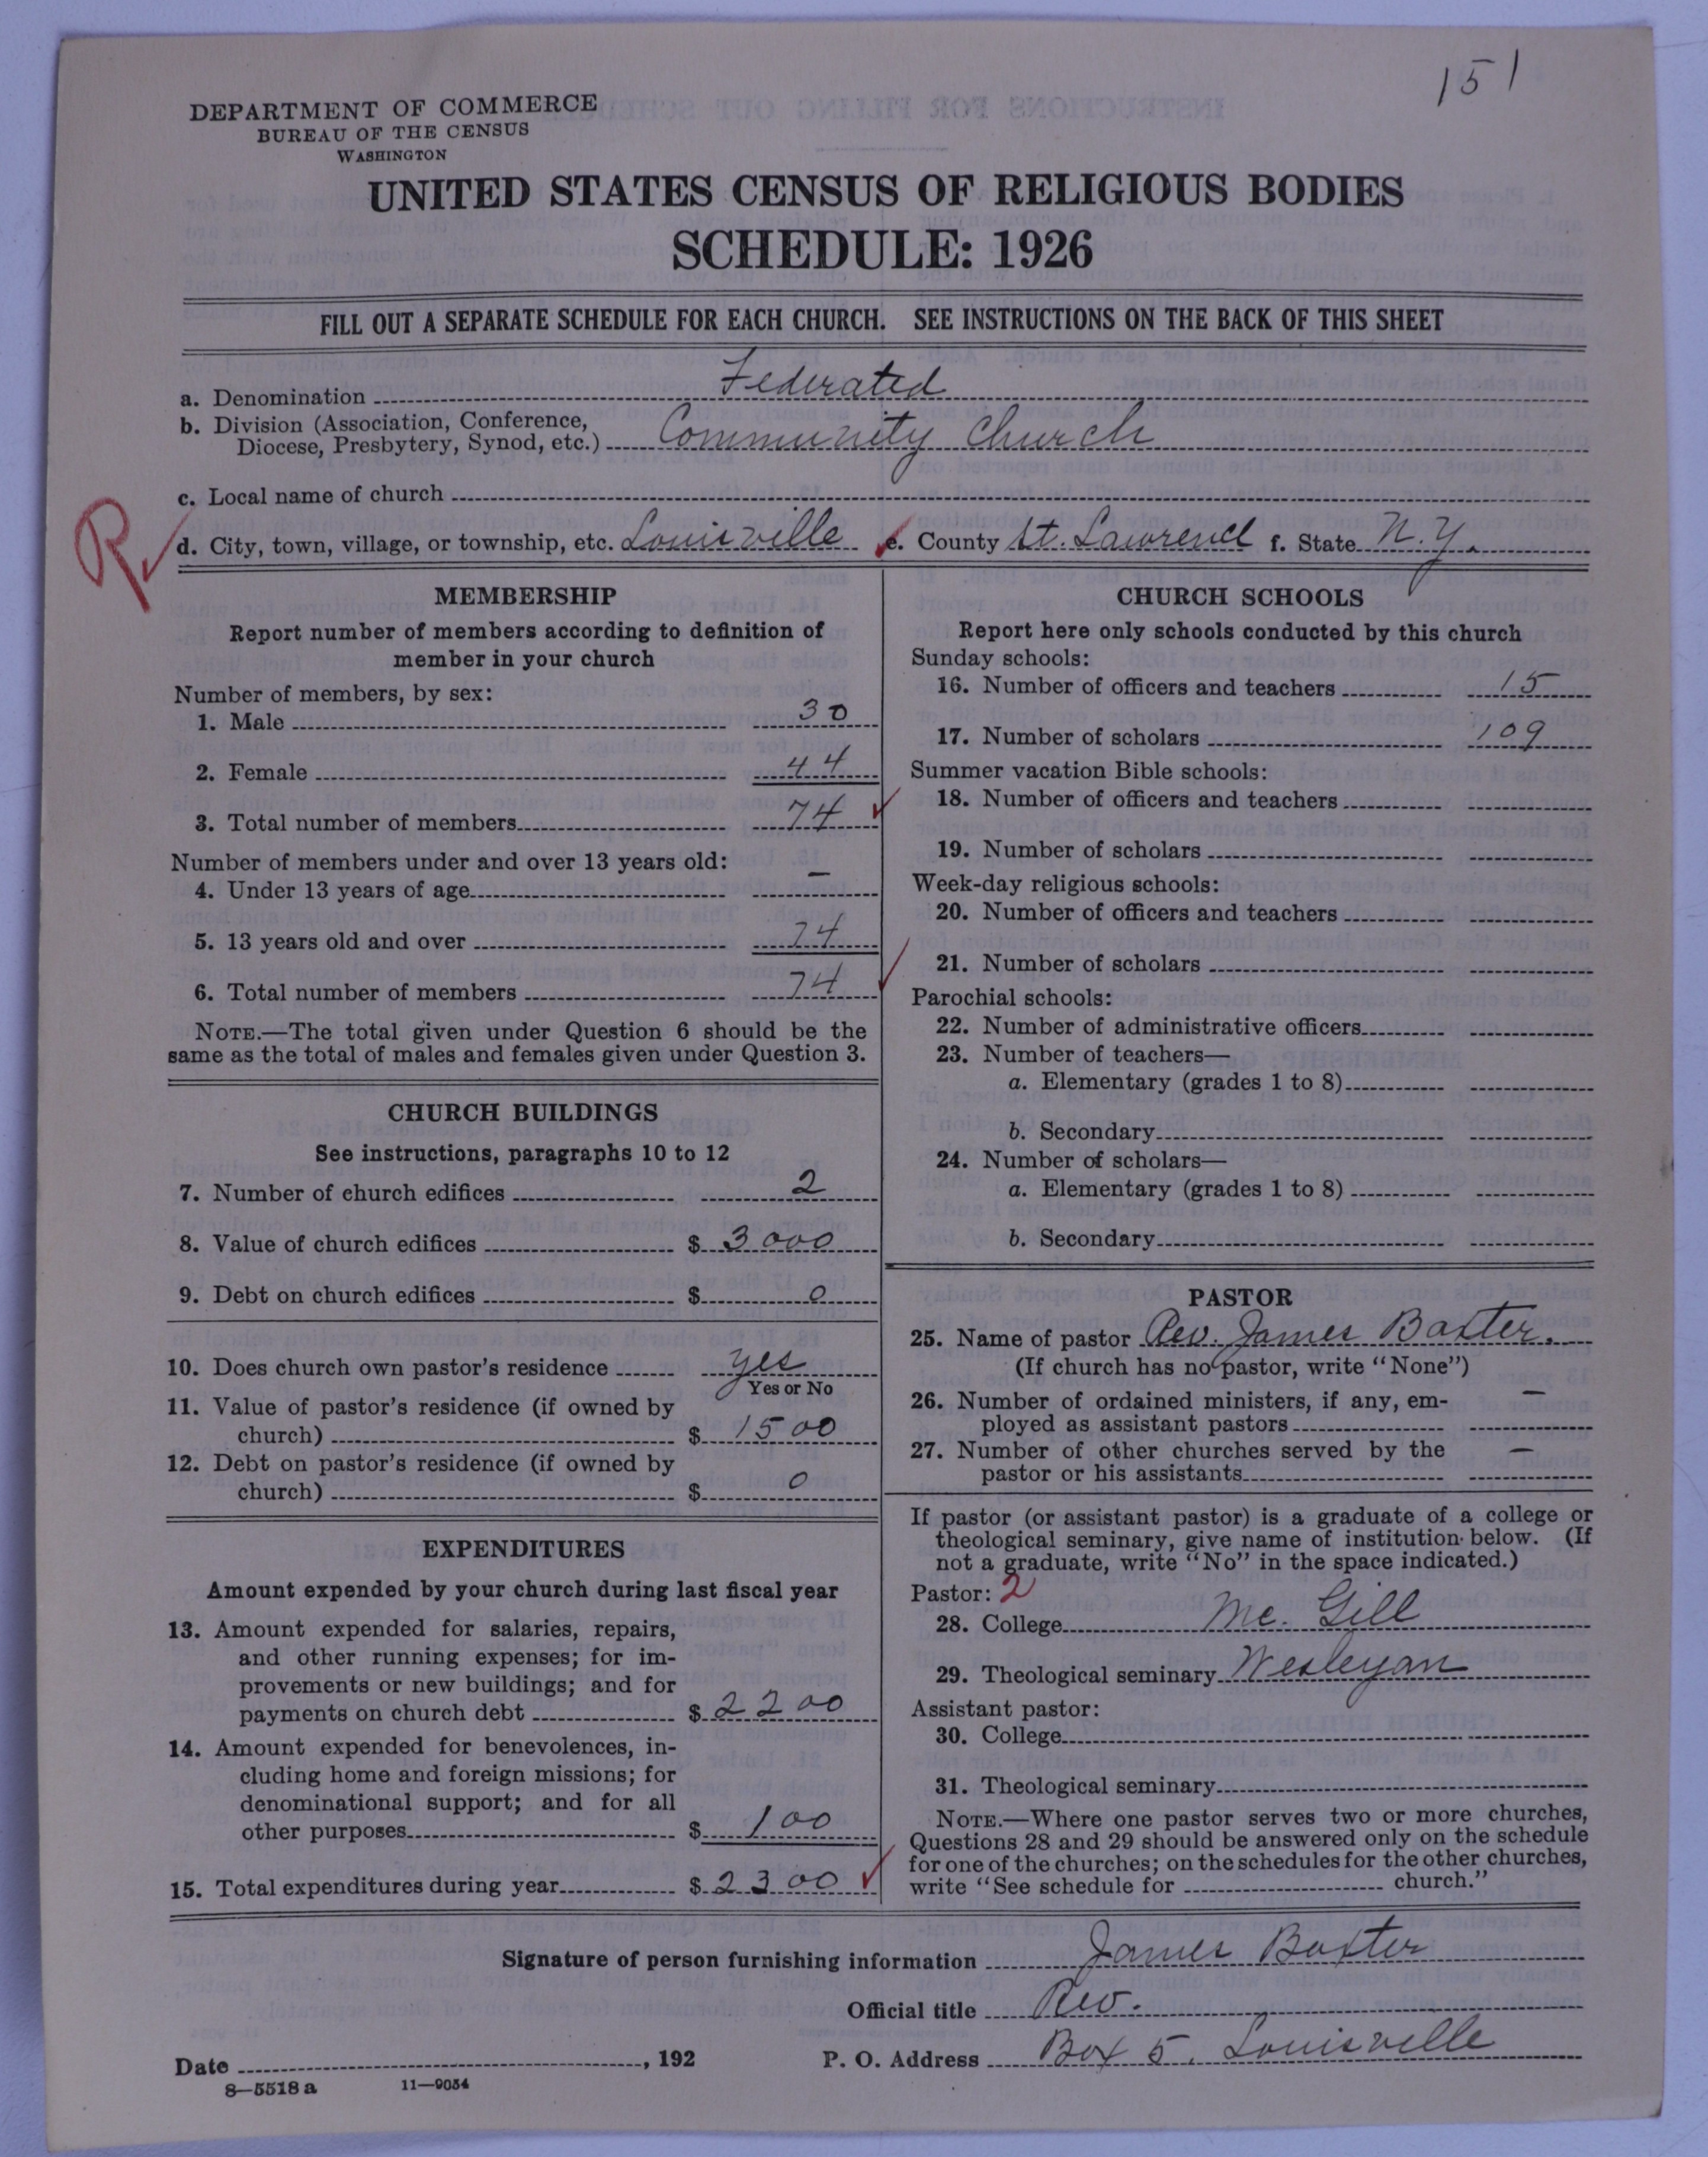 151
DEPARTMENT OF COMMERCE
BUREAU OF THE CENSUS
WASHINGTON
UNITED STATES CENSUS OF RELIGIOUS BODIES
SCHEDULE: 1926
FILL OUT A SEPARATE SCHEDULE FOR EACH CHURCH. SEE INSTRUCTIONS ON THE BACK OF THIS SHEET
a. Denomination Federated
b. Division (Association, Conference,
Diocese, Presbytery, Synod, etc.) Community Church
c. Local name of church
R
d. City, town, village, or township, etc. Louisville e. County St. Lawrence f. State N.Y.
MEMBERSHIP
Report number of members according to definition of
member in your church
Number of members, by sex:
1. Male 30
2. Female 44
3. Total number of members 74
Number of members under and over 13 years old:
4. Under 13 years of age –
5. 13 years old and over 74
6. Total number of members 74
NOTE.—The total given under Question 6 should be the
same as the total of males and females given under Question 3.
CHURCH BUILDINGS
See instructions, paragraphs 10 to 12
7. Number of church edifices 2
8. Value of church edifices $ 3000
9. Debt on church edifices $ 0
10. Does church own pastor's residence yes
Yes or No
11. Value of pastor's residence (if owned by
church) $ 1500
12. Debt on pastor's residence (if owned by
church) $ 0
EXPENDITURES
Amount expended by your church during last fiscal year
13. Amount expended for salaries, repairs,
and other running expenses; for im-
provements or new buildings; and for
payments on church debt $ 2200
14. Amount expended for benevolences, in-
cluding home and foreign missions; for
denominational support; and for all
other purposes $ 100
15. Total expenditures during year $ 2300
CHURCH SCHOOLS
Report here only schools conducted by this church
Sunday schools:
16. Number of officers and teachers 15
17. Number of scholars 109
Summer vacation Bible schools:
18. Number of officers and teachers
19. Number of scholars
Week-day religious schools:
20. Number of officers and teachers
21. Number of scholars
Parochial schools:
22. Number of administrative officers
23. Number of teachers—
a. Elementary (grades 1 to 8)
b. Secondary
24. Number of scholars—
a. Elementary (grades 1 to 8)
b. Secondary
PASTOR
25. Name of pastor Rev. James Baxter.
(If church has no pastor, write "None")
26. Number of ordained ministers, if any, em-
ployed as assistant pastors –
27. Number of other churches served by the
pastor or his assistants –
If pastor (or assistant pastor) is a graduate of a college or
theological seminary, give name of institution below. (If
not a graduate, write "No" in the space indicated.)
Pastor: 2
28. College Mc. Gill
29. Theological seminary Wesleyan
Assistant pastor:
30. College
31. Theological seminary
NOTE.—Where one pastor serves two or more churches,
Questions 28 and 29 should be answered only on the schedule
for one of the churches; on the schedules for the other churches,
write "See schedule for church."
Signature of person furnishing information James Baxter
Official title Rev.
Date , 192 P. O. Address Box 5. Louisville
8—5518 a 11—9054